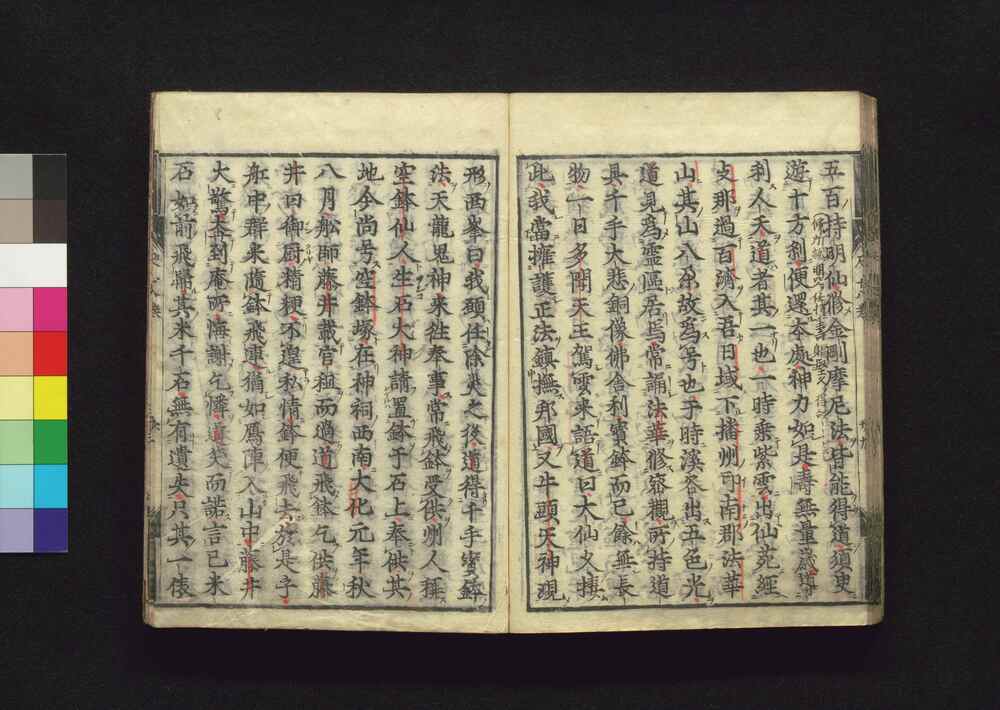 五百持明仙修金剛摩尼法皆能得道須臾
遊十方刹便還本處神力如是壽無量歳導
利人天道者其一也一時乘紫雲出仙苑經
支那過百濟入吾日域下播州印南郡法華
山其山八朶故爲号也于時溪谷出五色光
道見爲靈區居焉常誦法華修密觀所持道
具千手大悲銅像佛舎利寳鈴而已餘無長
物一日多聞天王駕雲來語道曰大仙久棲
此我當擁護正法鎮撫邦國又牛頭天神現
形西峯曰我頭住除災之後道得千手寳鉢
法天龍鬼神來往奉事常飛鉢受供州人稱
空鉢仙人生石大神請置鉢于石上奉供其
地今尚号空鉢塚在神祠西南大化元年秋
八月舩師藤井載官租而過道飛鉢乞供藤
井曰御厨精粳不遑私情鉢便飛去於是乎
舩中群米隨鉢飛連猶如鴈陣入山中藤井
大驚奔到庵所悔謝乞憐道笑而諾言已米
石如前飛歸其米千石無有遺失只其一俵